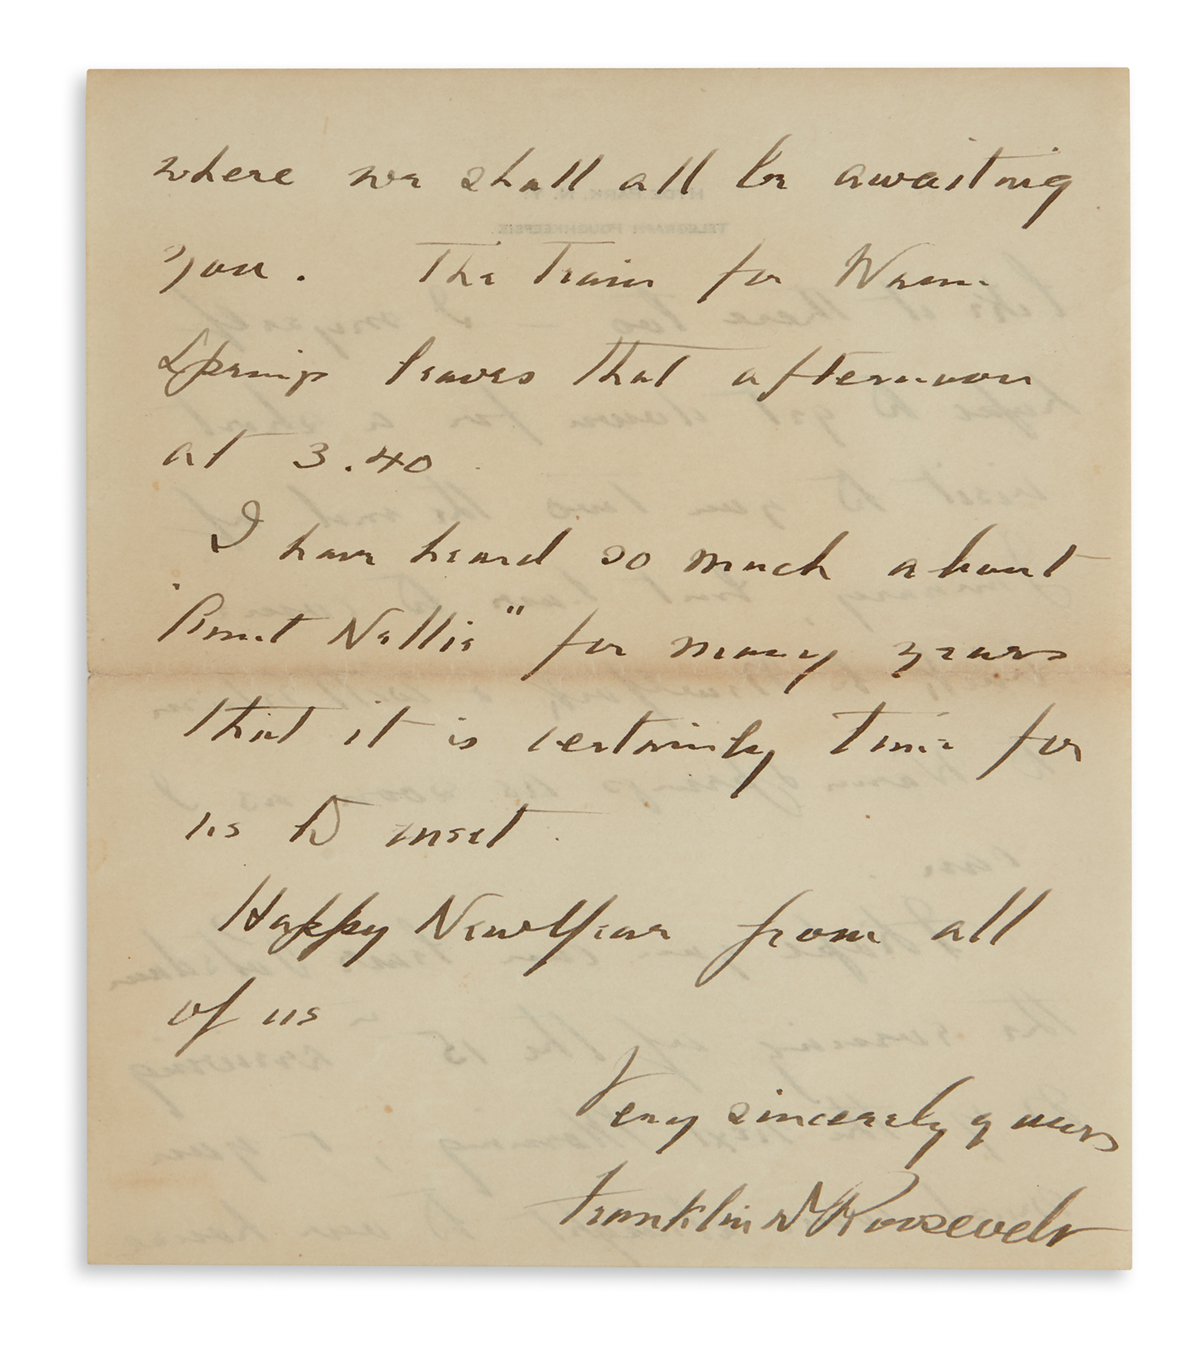 where we shall all be awaiting
you. The train for Warm
Springs leaves that afternoon
at 3.40
I have heard so much about
"Aunt Nellie" for many years
that it is certainly time for
us to meet.
Happy New Year from all
of us
Very sincerely yours
Franklin D Roosevelt